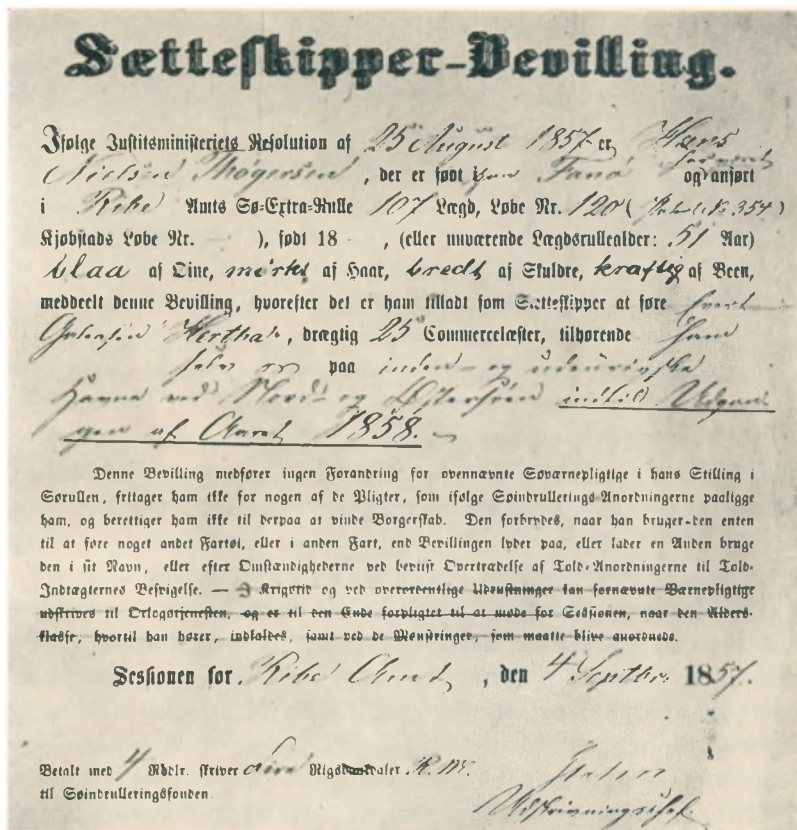 Sætteskipper-Bevilling.
Ifølge Justitsministeriets Resolution af 25 August 1857 er Hans
Nielsen Thøgersen, der er født paa Fanø og anført
i Ribe Amts Sø-Extra-Rulle 107 Lægd, Løbe Nr. 120 (
Kjøbstads Løbe Nr. — ), født 18 — , (eller nuværende Lægdsrullealder: 51 Aar)
blaa af Øine, mørkt af Haar, bredt af Skuldre, kraftig af Been,
meddeelt denne Bevilling, hvorefter det er ham tilladt som Sætteskipper at føre
Hertha, drægtig 25 Commercelæster, tilhørende ham
selv paa inden- og udenrigske
Havne ved Nord- og Østersøen indtil Udgan-
gen af Aaret 1858.
Denne Bevilling medfører ingen Forandring for ovennævnte Søværnepligtige i hans Stilling i
Sørullen, fritager ham ikke for nogen af de Pligter, som ifølge Søindrullerings Anordningerne paaligge
ham, og berettiger ham ikke til derpaa at vinde Borgerskab. Den forbrydes, naar han bruger den enten
til at føre noget andet Fartøi, eller i anden Fart, end Bevillingen lyder paa, eller lader en Anden bruge
den i sit Navn, eller efter Omstændighederne ved beviist Overtrædelse af Told-Anordningerne til Told-
Indtægternes Besvigelse. — I Krigstid og ved overordentlige Udrustninger kan fornævnte Værnepligtige
udskrives til Orlogstjenesten, og er til den Ende forpligtet til at møde for Sessionen, naar den Alders-
klasse, hvortil han hører, indkaldes, samt ved de Mønstringer, som maatte blive anordnede.
Sessionen for Ribe Amt, den 4 Septbr. 1857.
Betalt med 4 Rbdlr. skriver fire Rigsbankdaler R. M.
til Søindrulleringsfonden.
Udskrivningschef.